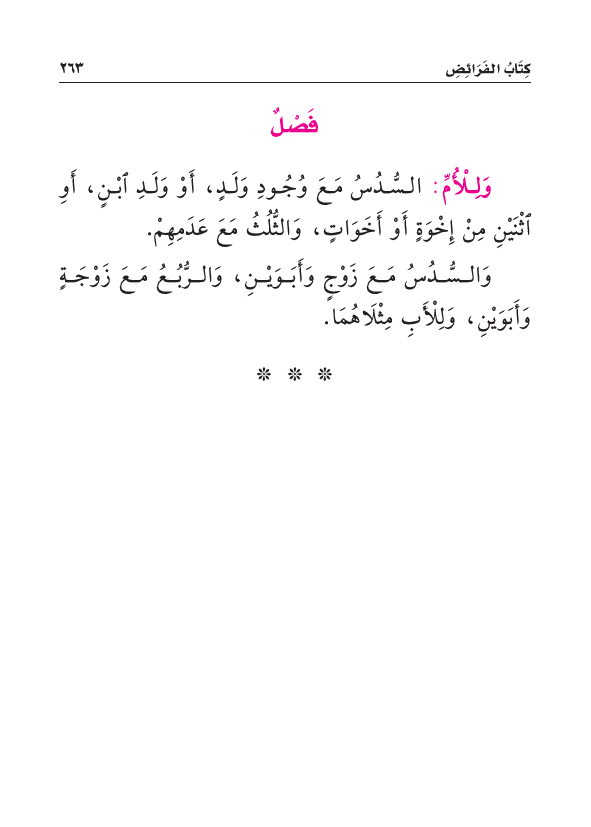 كِتَابُ الفَرَائِضِ ٢٦٣
فَصْلٌ
وَلِلْأُمِّ: السُّدُسُ مَعَ وُجُودِ وَلَدٍ، أَوْ وَلَدِ ٱبْنٍ، أَوِ
ٱثْنَيْنِ مِنْ إِخْوَةٍ أَوْ أَخَوَاتٍ، وَالثُّلُثُ مَعَ عَدَمِهِمْ.
وَالسُّدُسُ مَعَ زَوْجٍ وَأَبَوَيْنِ، وَالرُّبُعُ مَعَ زَوْجَةٍ
وَأَبَوَيْنِ، وَلِلْأَبِ مِثْلَاهُمَا.
❊ ❊ ❊